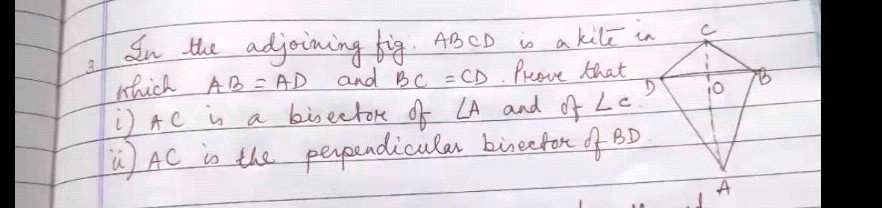 3. In the adjoining fig. ABCD is a kite in
which AB = AD and BC = CD. Prove that
i) AC is a bisector of ∠A and of ∠C.
ii) AC is the perpendicular bisector of BD.
C
D
B
O
A